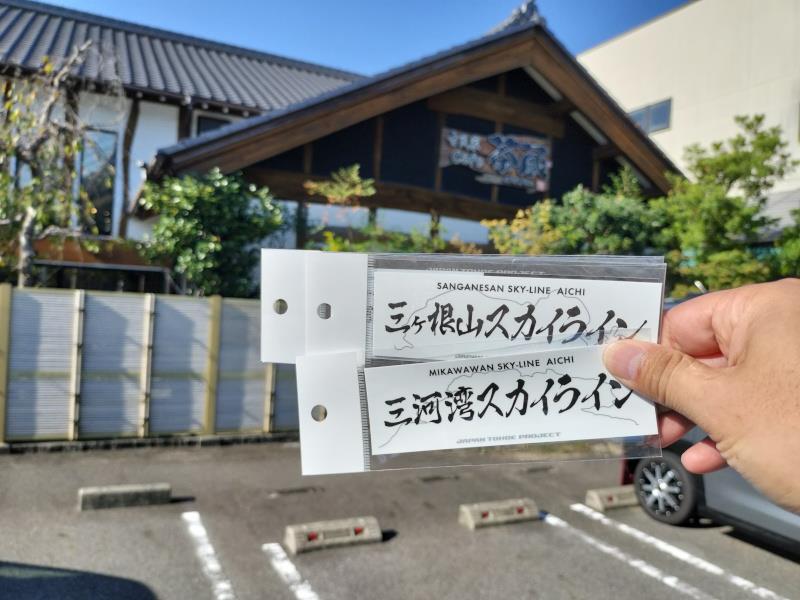 SANGANESAN SKY-LINE AICHI
三ヶ根山スカイライン
MIKAWAWAN SKY-LINE AICHI
三河湾スカイライン
JAPAN TOHGE PROJECT